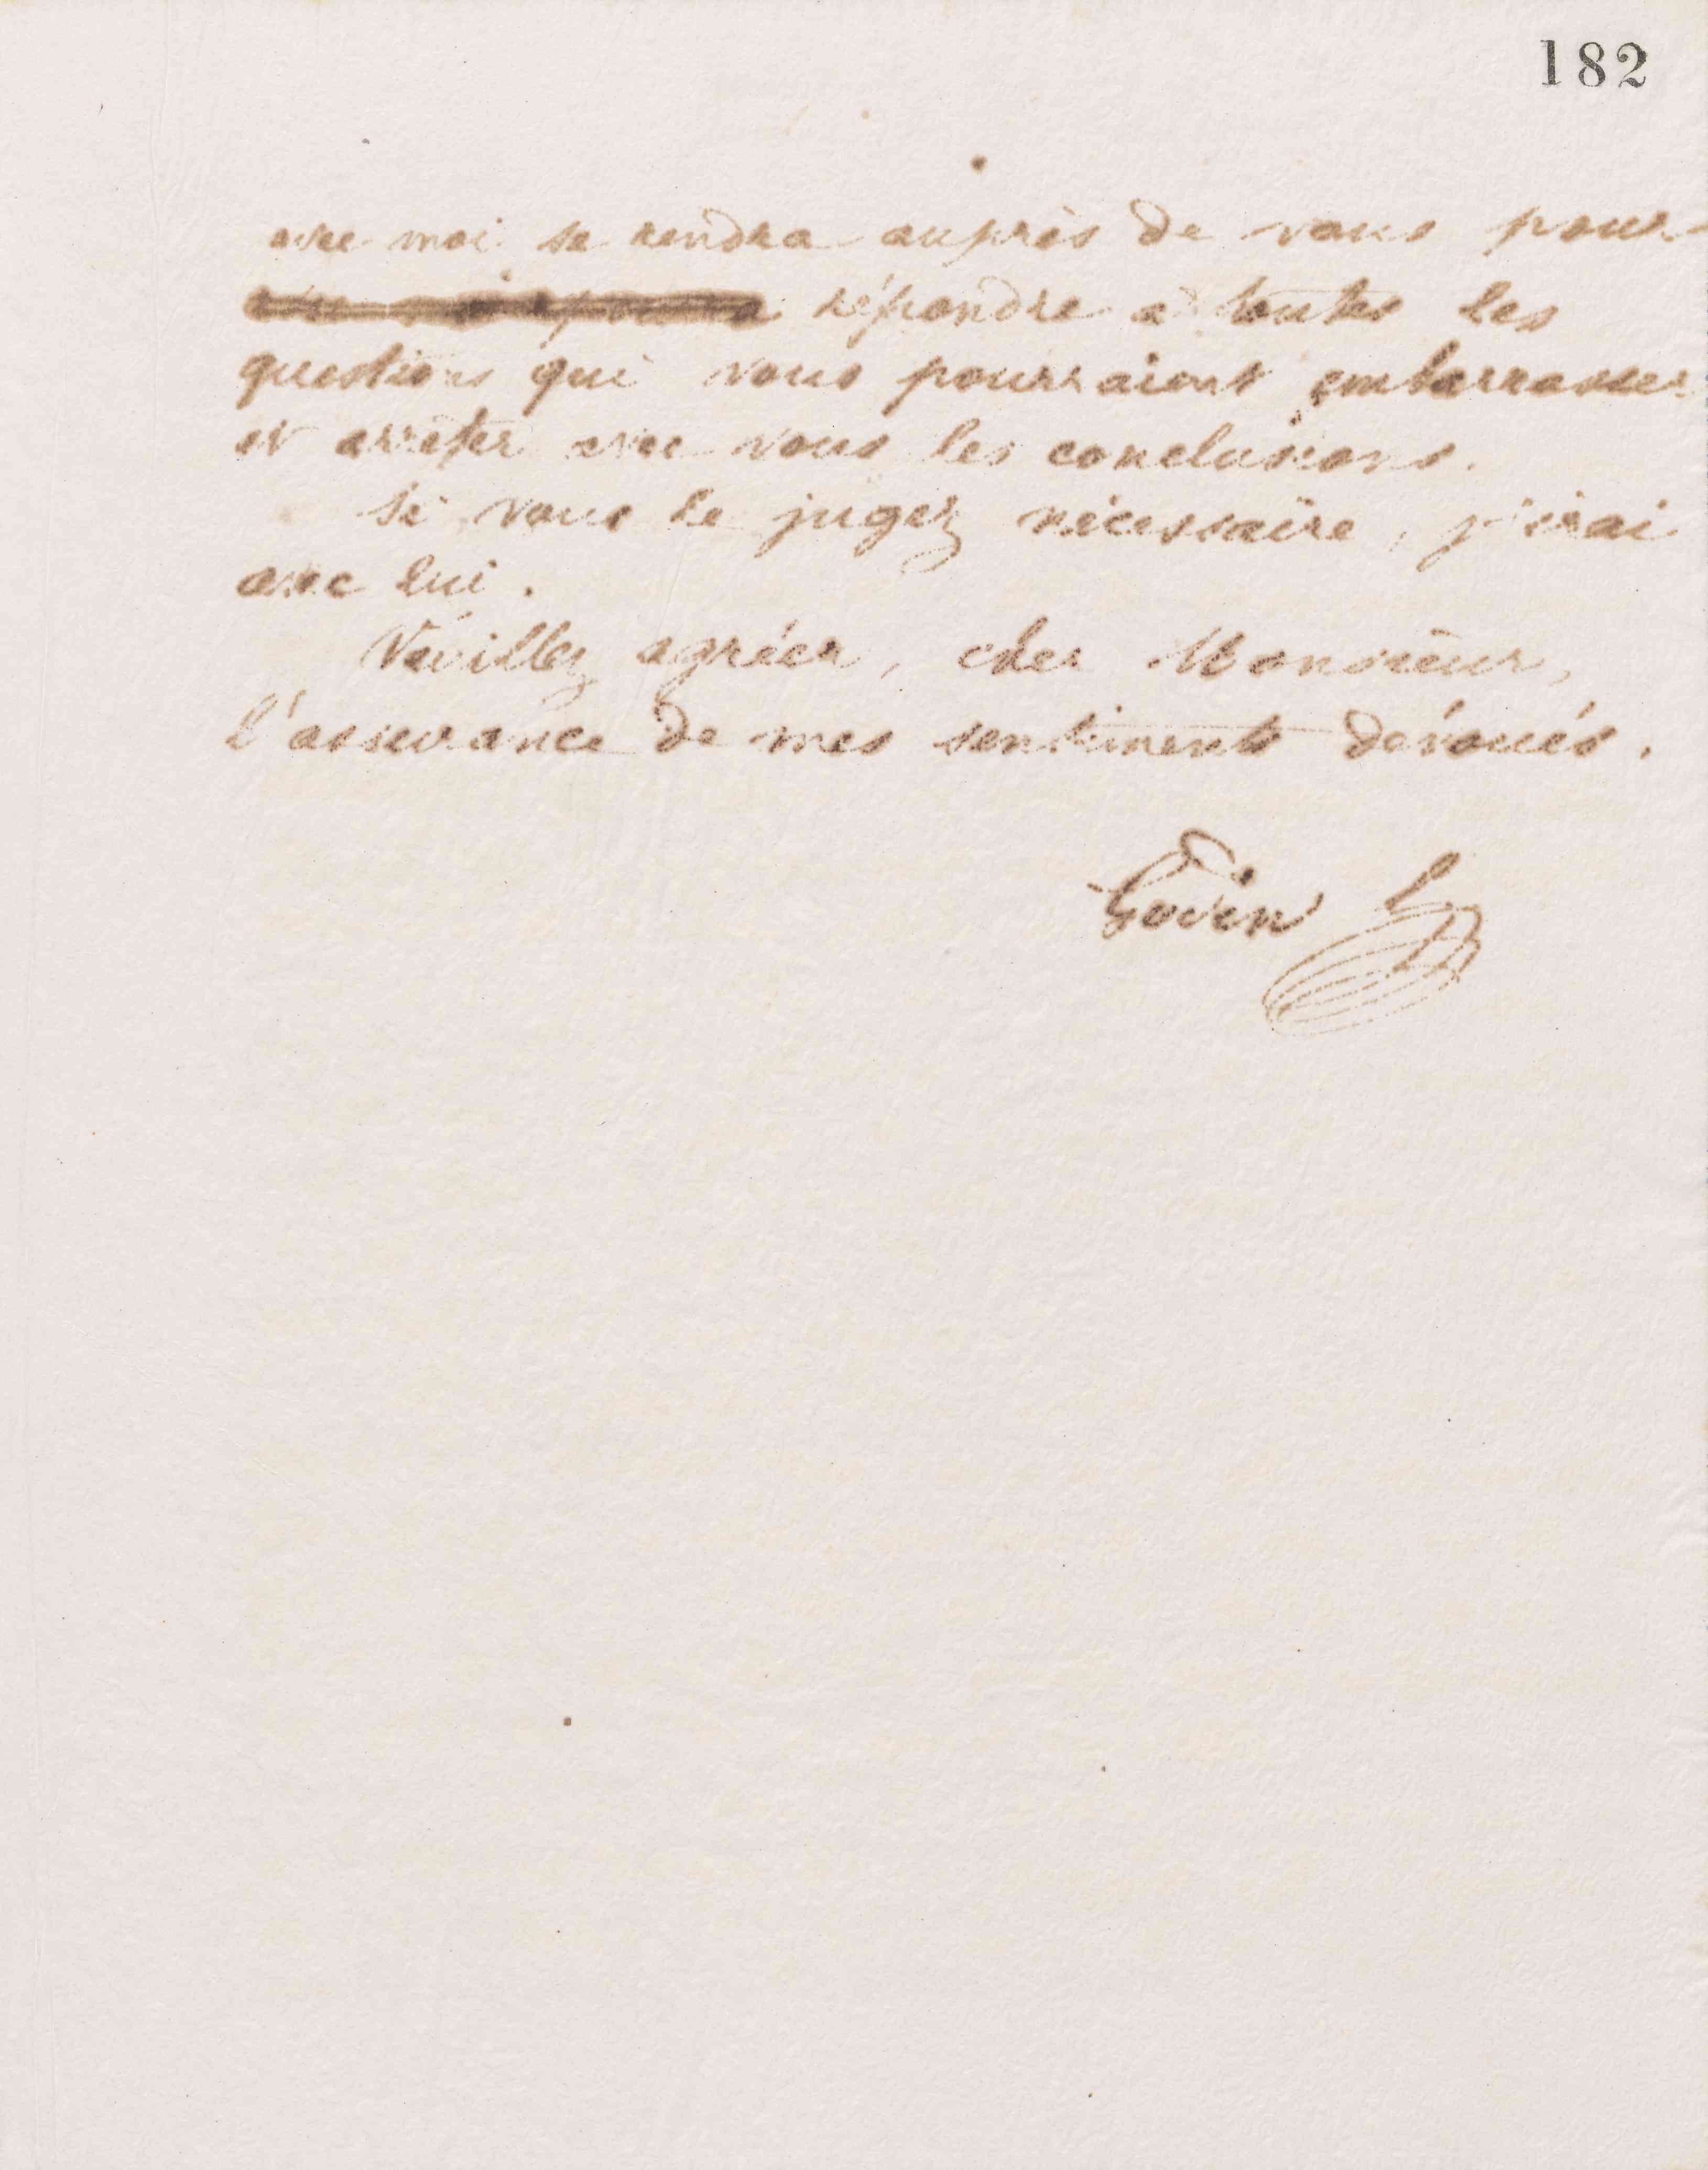 182
avec moi se rendra auprès de vous pour
répondre à toutes les
questions qui vous pourraient embarrasser
et arrêter avec vous les conclusions.
Si vous le jugez nécessaire, j'irai
avec lui.
Veuillez agréer, cher Monsieur,
l'assurance de mes sentiments dévoués.
Godin